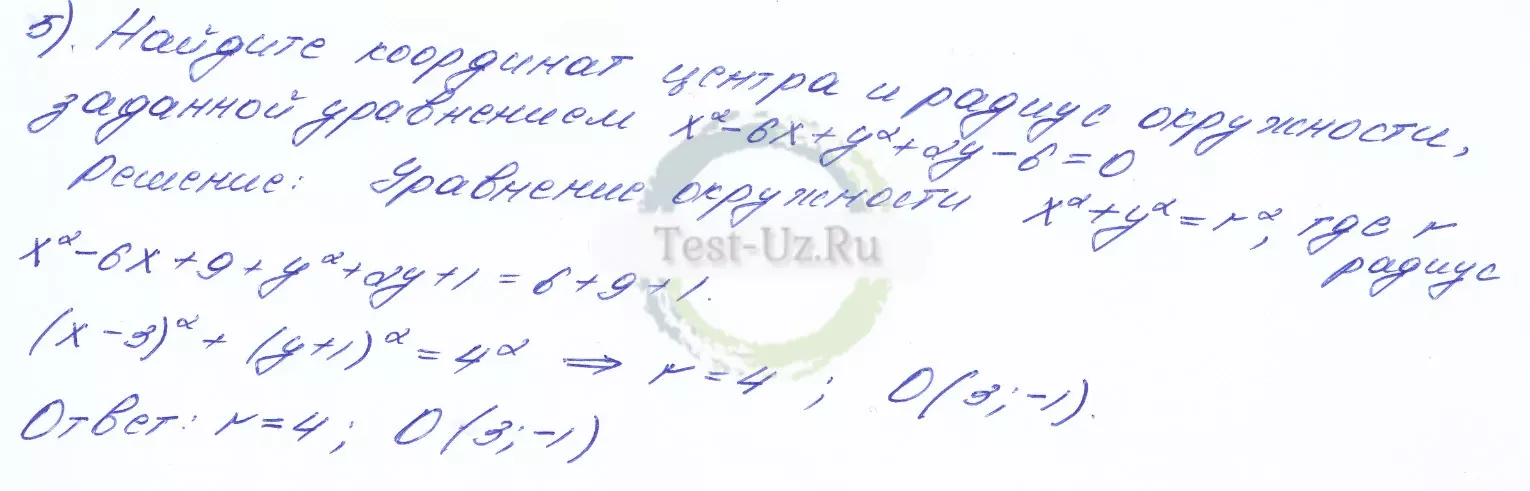 5). Найдите координат центра и радиус окружности,
заданной уравнением x²-6x+y²+2y-6=0
Решение: Уравнение окружности x²+y²=r², где r
радиус
x²-6x+9+y²+2y+1=6+9+1.
(x-3)²+(y+1)²=4² ⇒ r=4; O(3;-1).
Ответ: r=4; O(3;-1)
Test-Uz.Ru